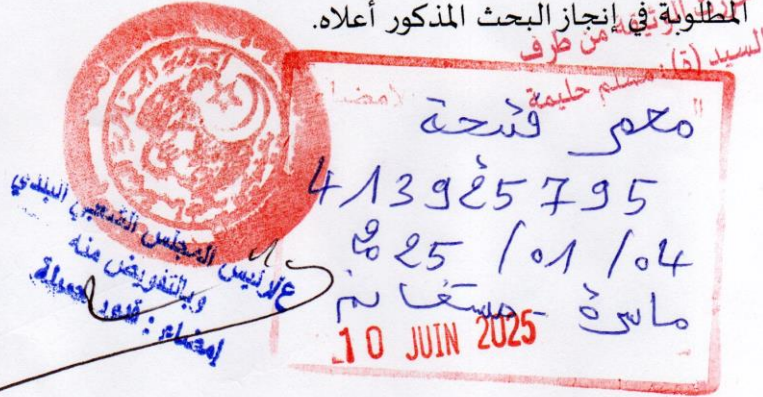 المطلوبة في إنجاز البحث المذكور أعلاه.
الوثيقة من طرف
السيد (ة): مسلم حليمة
معمر فتيحة
413925795
2025 /01 /04
ماسرة - مستغانم
10 JUIN 2025
ع/رئيس المجلس الشعبي البلدي
وبالتفويض منه
إمضاء : قدور جميلة